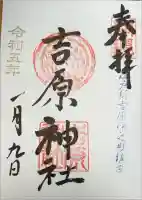 奉拝
吉原神社
令和五年
一月九日